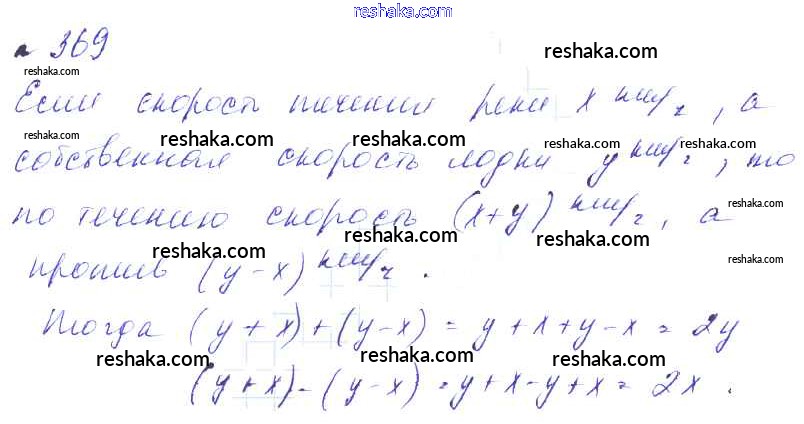 reshaka.com
№ 369
reshaka.com
reshaka.com
reshaka.com
Если скорость течения реки x км/ч, а
reshaka.com
reshaka.com
reshaka.com
собственная скорость лодки y км/ч, то
reshaka.com
reshaka.com
reshaka.com
по течению скорость (x+y) км/ч, а
reshaka.com
reshaka.com
reshaka.com
против (y-x) км/ч.
Тогда (y+x)+(y-x) = y+x+y-x = 2y
reshaka.com
reshaka.com
reshaka.com
(y+x)-(y-x)=y+x-y+x= 2x.
reshaka.com
reshaka.com
reshaka.com